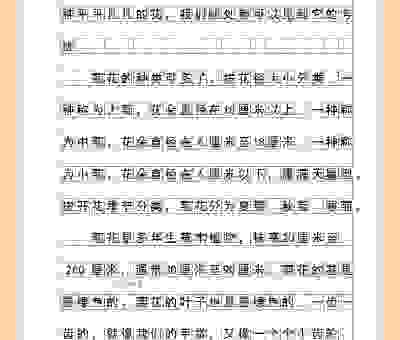 种平平凡凡的花，我们随处都可以见到它的身
影
菊花的种类可多了，按花径大小分类，一
种称为大菊，花朵直径在18厘米以上，一种称
为中菊，花朵直径在九厘米至18厘米，一种称
为小菊，花朵直径在九厘米以下，
按开花季节分类，菊花分为夏菊、秋菊、寒菊，
菊花是多年生草本植物，株高20厘米至
200厘米，通常30厘米至90厘米，菊花的茎是
色的，菊花的叶子也是 绿色的，一齿一
齿的，就像我们的手掌，又像一个个小齿轮，